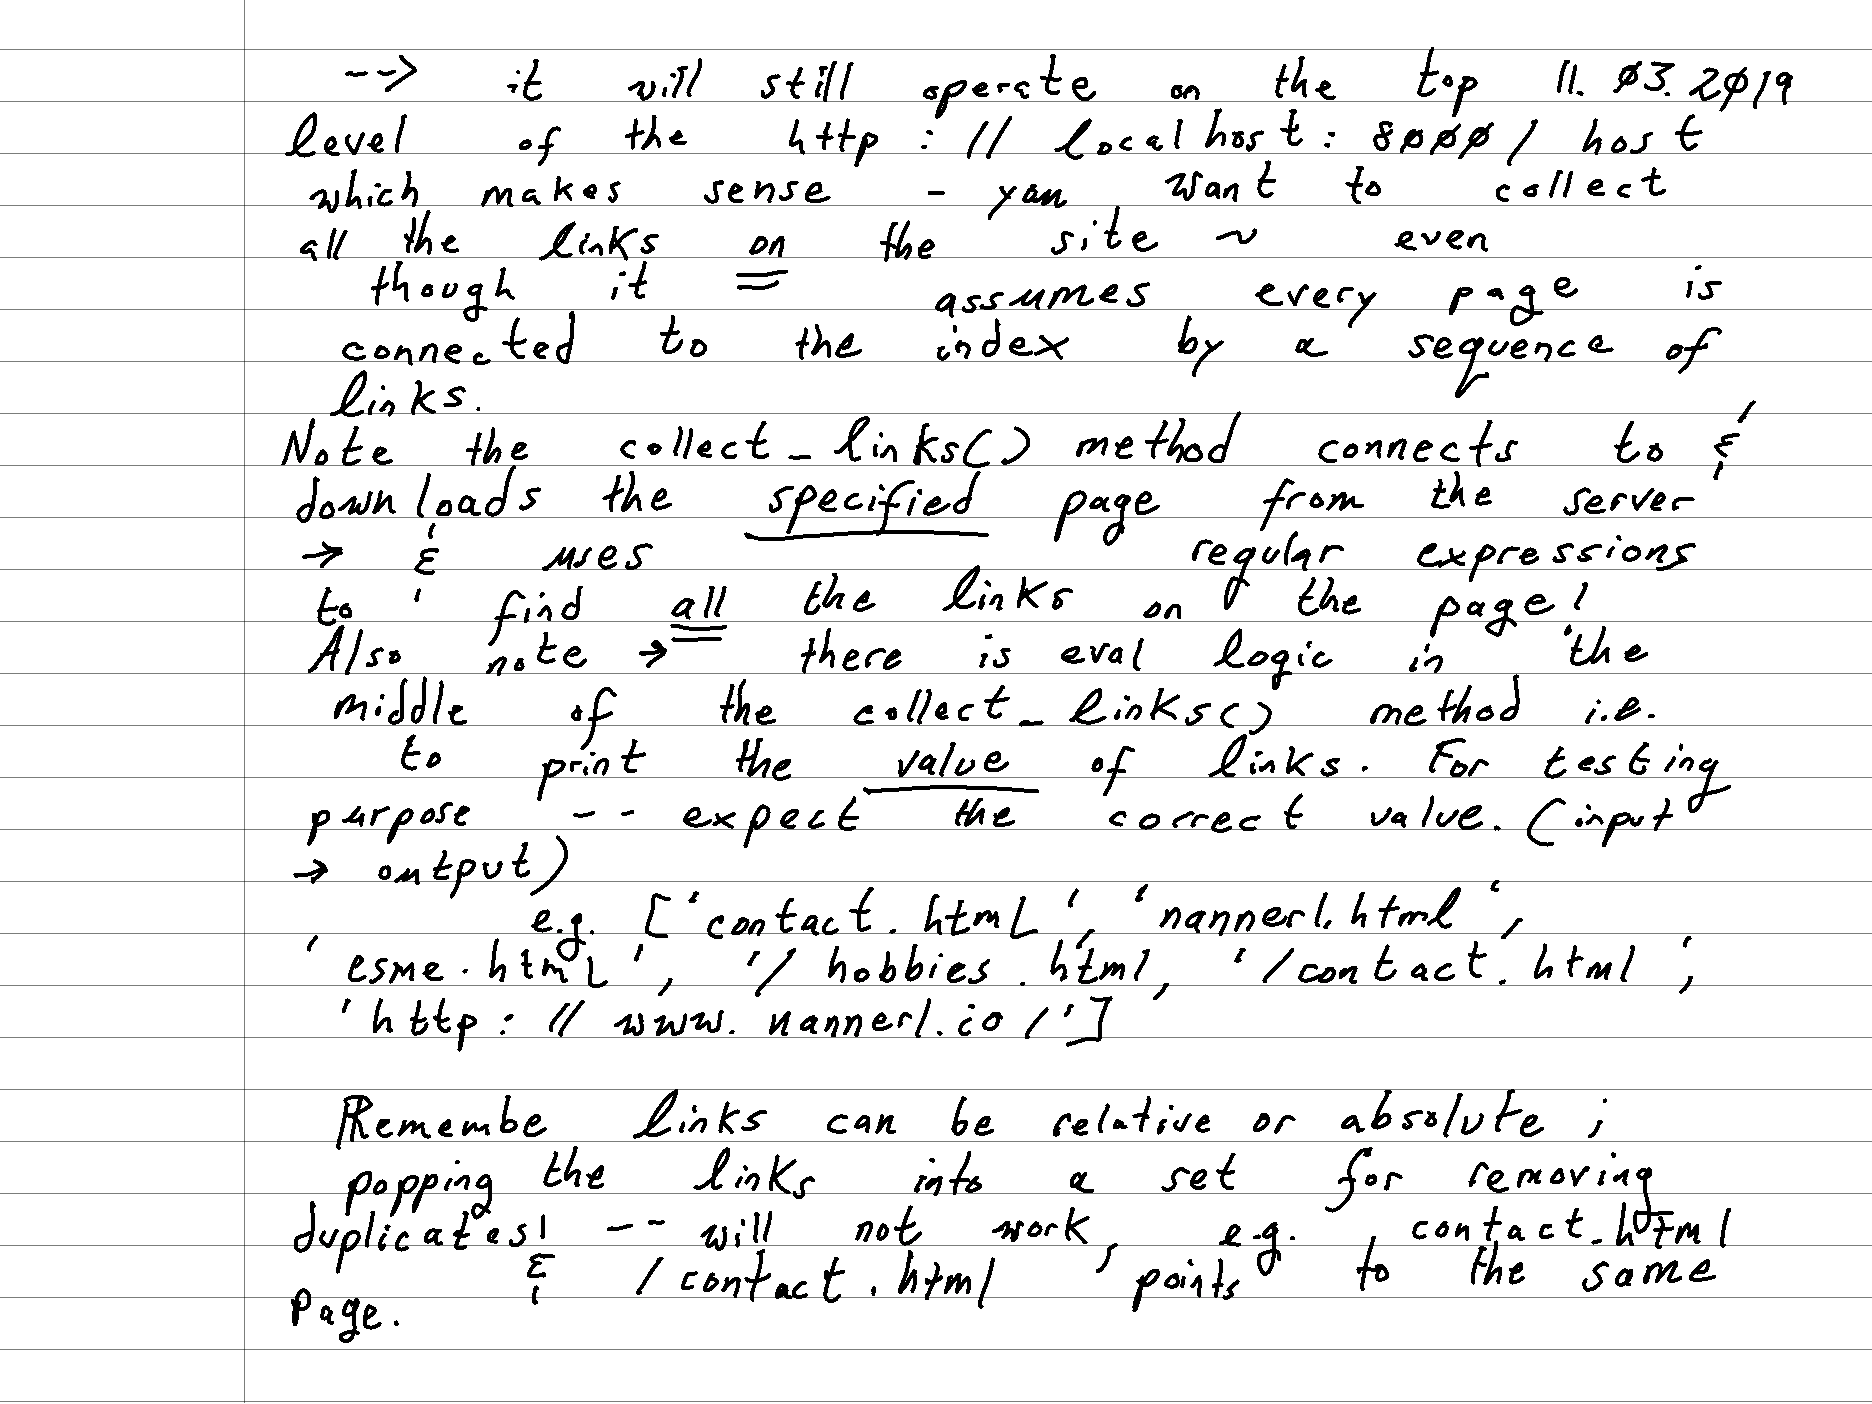 --> it will still operate on the top 11.03.2019
level of the http://localhost:8000/ host
which makes sense - you want to collect
all the links on the site ~ even
though it assumes every page is
connected to the index by a sequence of
links.
Note the collect_links() method connects to &
downloads the specified page from the server
→ & uses regular expressions
to find all the links on the page!
Also note → there is eval logic in the
middle of the collect_links() method i.e.
to print the value of links. For testing
purpose -- expect the correct value. (input
→ output)
e.g. ['contact.html', 'nannerl.html',
'esme.html', '/hobbies.html, '/contact.html',
'http://www.nannerl.io/']
Remembe links can be relative or absolute;
popping the links into a set for removing
duplicates! -- will not work, e.g. contact.html
& /contact.html points to the same
page.